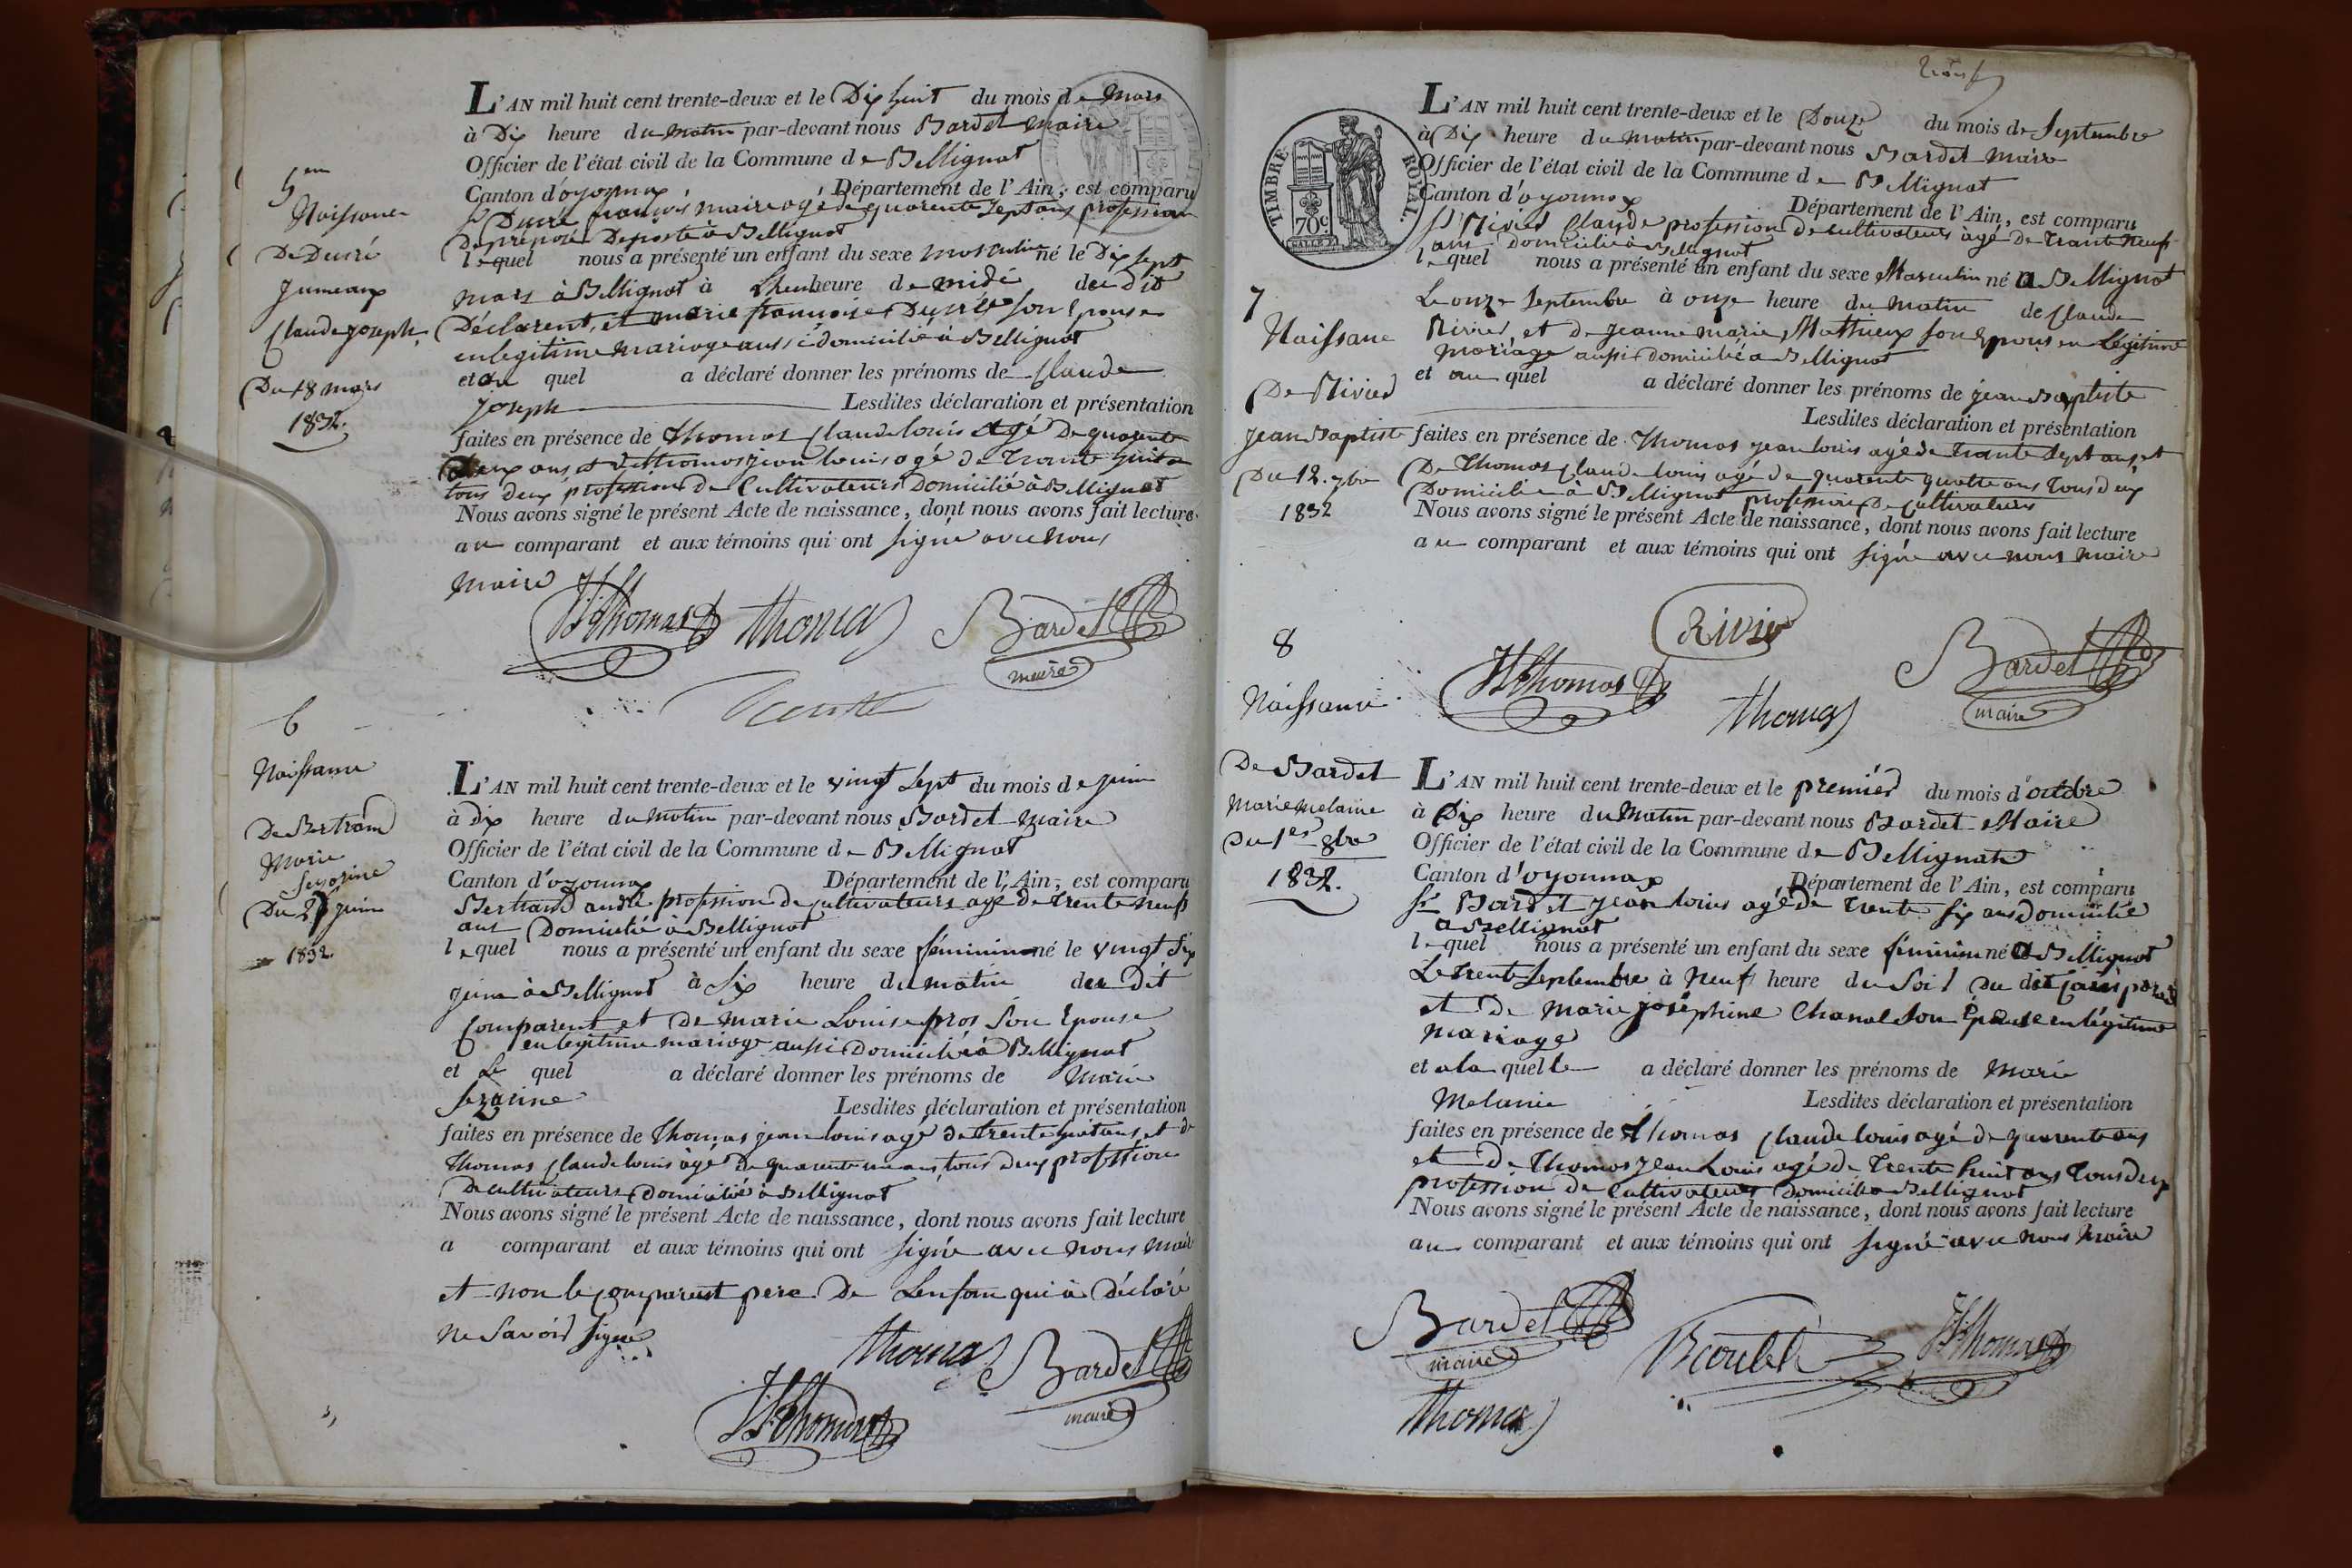 5em
Naissance
De Ducré
Jumeaux
Claude Joseph
Du 18 mars
1832.
L'AN mil huit cent trente-deux et le Dix huit du mois de Mars
à Dix heure du matin par-devant nous Bardet maire
Officier de l'état civil de la Commune de Bellignat
Canton d'oyonnax Département de l'Ain, est comparu
Ducré françois maire agé de quarente sept ans profession
De préposé De poste à Bellignat
lequel nous a présenté un enfant du sexe masculin né le Dix sept
mars à Bellignat à heure de midi du dit
Déclarent, et marie françoise Ducrée son Epouse
en legitime mariage aussi domicilié à Bellignat
et au quel a déclaré donner les prénoms de Claude
Joseph Lesdites déclaration et présentation
faites en présence de Thomas Claude louis agé De quarente
Deux ans et de thomas jean louis agé de trante huit
tous deux profession de Cultivateurs Domicilié à Bellignat
Nous avons signé le présent Acte de naissance, dont nous avons fait lecture
au comparant et aux témoins qui ont signé avec nous
maire
JLThomas Thomas Bardet
maire
6
Naissance
De Bertrand
Marie
Serorine
Du 27 juin
1832.
L'AN mil huit cent trente-deux et le vingt sept du mois de juin
à dix heure du matin par-devant nous Bardet maire
Officier de l'état civil de la Commune de Bellignat
Canton d'oyonnax Département de l'Ain, est comparu
Bertrand andré profession de cultivateurs agé de trente neuf
ans Domicilié à Bellignat
lequel nous a présenté un enfant du sexe féminin né le vingt six
juin à Bellignat à Six heure du matin du dit
Comparent et de marie Louise pros son Epouse
en legitime mariage aussi Domicilié à Bellignat
et le quel a déclaré donner les prénoms de Marie
Lesdites déclaration et présentation
faites en présence de Thomas jean louis agé de trente huit ans et de
Thomas Claude louis àgé de quarente un ans tous deux profession
De cultivateurs Domicilié à Bellignat
Nous avons signé le présent Acte de naissance, dont nous avons fait lecture
a comparant et aux témoins qui ont signé avec nous maire
et non le comparent pere De Lenfan qui à Déclaré
ne Savoir signé
Thomas Bardet
maire
JLThomas
TIMBRE ROYAL.
70c
L'AN mil huit cent trente-deux et le Douze du mois de Septembre
à Dix heure du matin par-devant nous Bardet maire
Officier de l'état civil de la Commune de Bellignat
Canton d'oyonnax Département de l'Ain, est comparu
Sr Rivier Claude profession de cultivateurs àgé de trante neuf
ans domicilié à Bellignat
lequel nous a présenté un enfant du sexe Masculin né à Bellignat
Le onze Septembre à onze heure du matin de Claude
Rivier, et de jeanne marie Mathieux son Epouse en Légitime
mariage aussi domicilié à Bellignat
et au quel a déclaré donner les prénoms de jean Baptiste
Lesdites déclaration et présentation
faites en présence de Thomas jean louis agé de trante sept ans et
De Thomas Claude louis agé de quarente quatre ans tous deux
Domicilié à Bellignat profession De Cultivateurs
Nous avons signé le présent Acte de naissance, dont nous avons fait lecture
au comparant et aux témoins qui ont signé avec nous maire
7
Naissance
De Rivier
jean Baptiste
Du 12. 7bre
1832
Rivier
JLThomas Thomas Bardet
maire
8
Naissance
De Bardet
Marie Melanie
Du 1er 8bre
1832.
L'AN mil huit cent trente-deux et le premier du mois d'octobre
à Dix heure du Matin par-devant nous Bardet Maire
Officier de l'état civil de la Commune de Bellignat
Canton d'oyonnax Département de l'Ain, est comparu
Sr Bardet jean louis agé de trente six ans domicilié
à Bellignat
lequel nous a présenté un enfant du sexe féminin né à Bellignat
Le trente Septembre à neuf heure du Soir du dit
et De Marie joséphine Chanal son Épouse en légitime
mariage
et a la quelle a déclaré donner les prénoms de Marie
Melanie Lesdites déclaration et présentation
faites en présence de Thomas Claude louis agé de quarente ans
et de Thomas Jean Louis agé de trente huit ans tous deux
profession de Cultivateurs domicilié à Bellignat
Nous avons signé le présent Acte de naissance, dont nous avons fait lecture
au comparant et aux témoins qui ont signé avec nous maire
Bardet
maire
JLThomas
Thomas